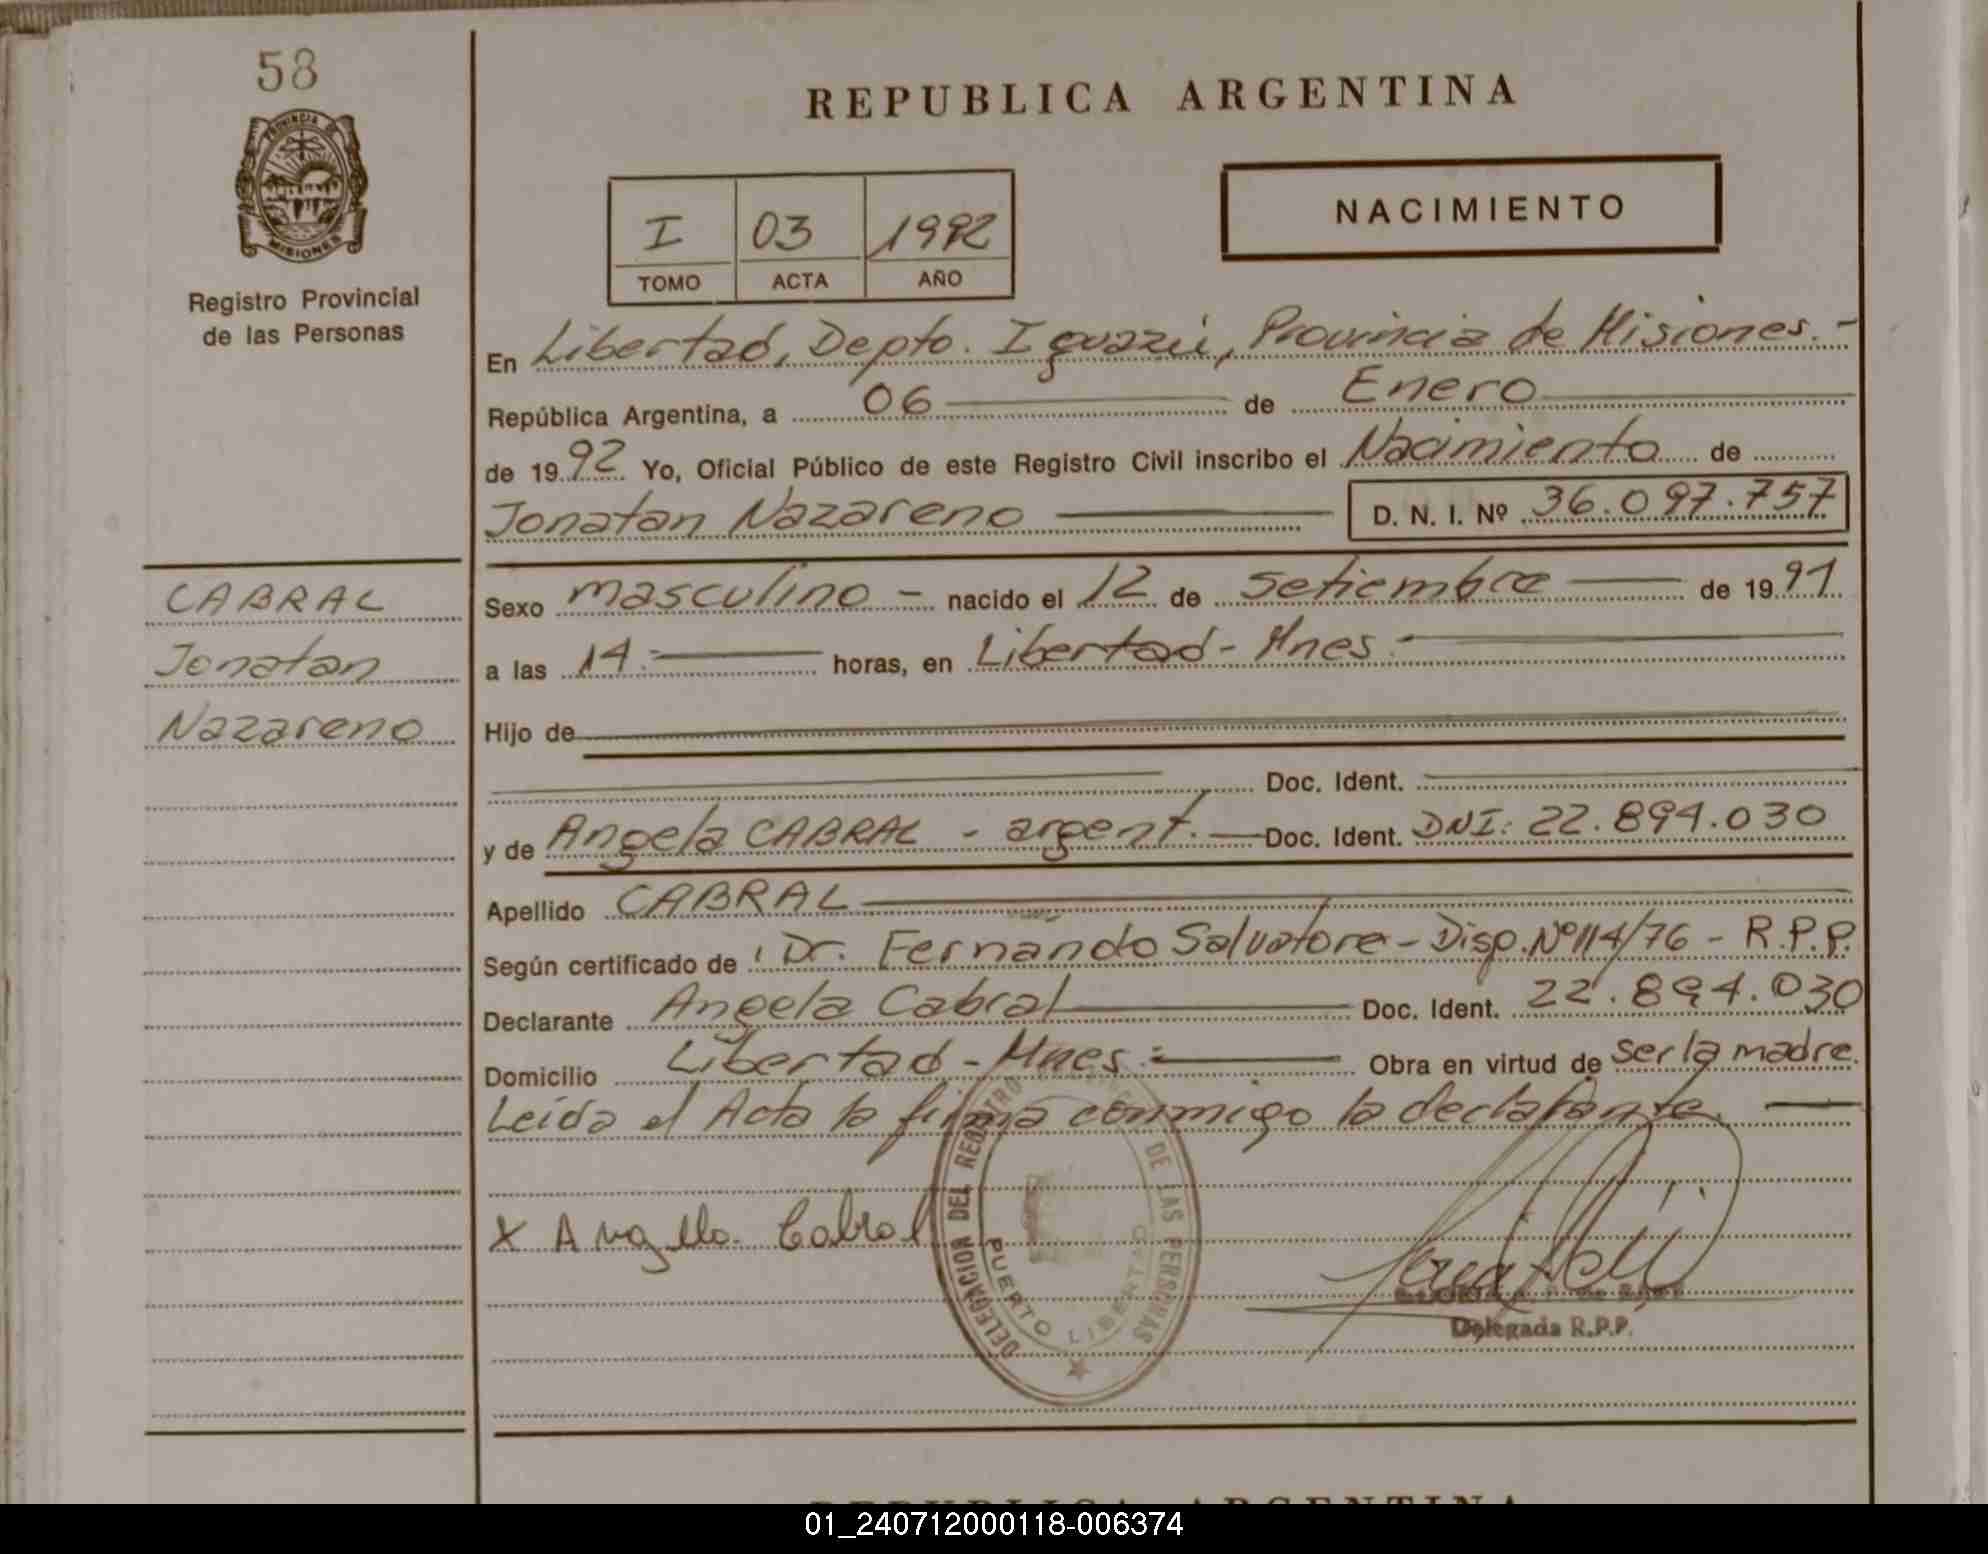 58
REPUBLICA ARGENTINA
PROVINCIA DE
MISIONES
Registro Provincial
de las Personas
I 03 1992
TOMO ACTA AÑO
NACIMIENTO
En Libertad, Depto. Iguazú, Provincia de Misiones.-
República Argentina, a 06 de Enero
de 1992 Yo, Oficial Público de este Registro Civil inscribo el Nacimiento de
Jonatan Nazareno D. N. I. Nº 36.097.757
CABRAL
Jonatan
Nazareno
Sexo masculino - nacido el 12 de Setiembre de 1991
a las 14.- horas, en Libertad - Mnes.-
Hijo de
Doc. Ident.
y de Angela CABRAL - argent. Doc. Ident. DNI: 22.894.030
Apellido CABRAL
Según certificado de Dr. Fernando Salvatore - Disp. Nº 114/76 - R.P.P.
Declarante Angela Cabral Doc. Ident. 22.894.030
Domicilio Libertad - Mnes.- Obra en virtud de ser la madre.
Leída el Acta la firma conmigo la declarante.
X Angela Cabral
DELEGACION DEL REGISTRO DE LAS PERSONAS
PUERTO LIBERTAD
Delegada R.P.P.
REPUBLICA ARGENTINA
01_240712000118-006374